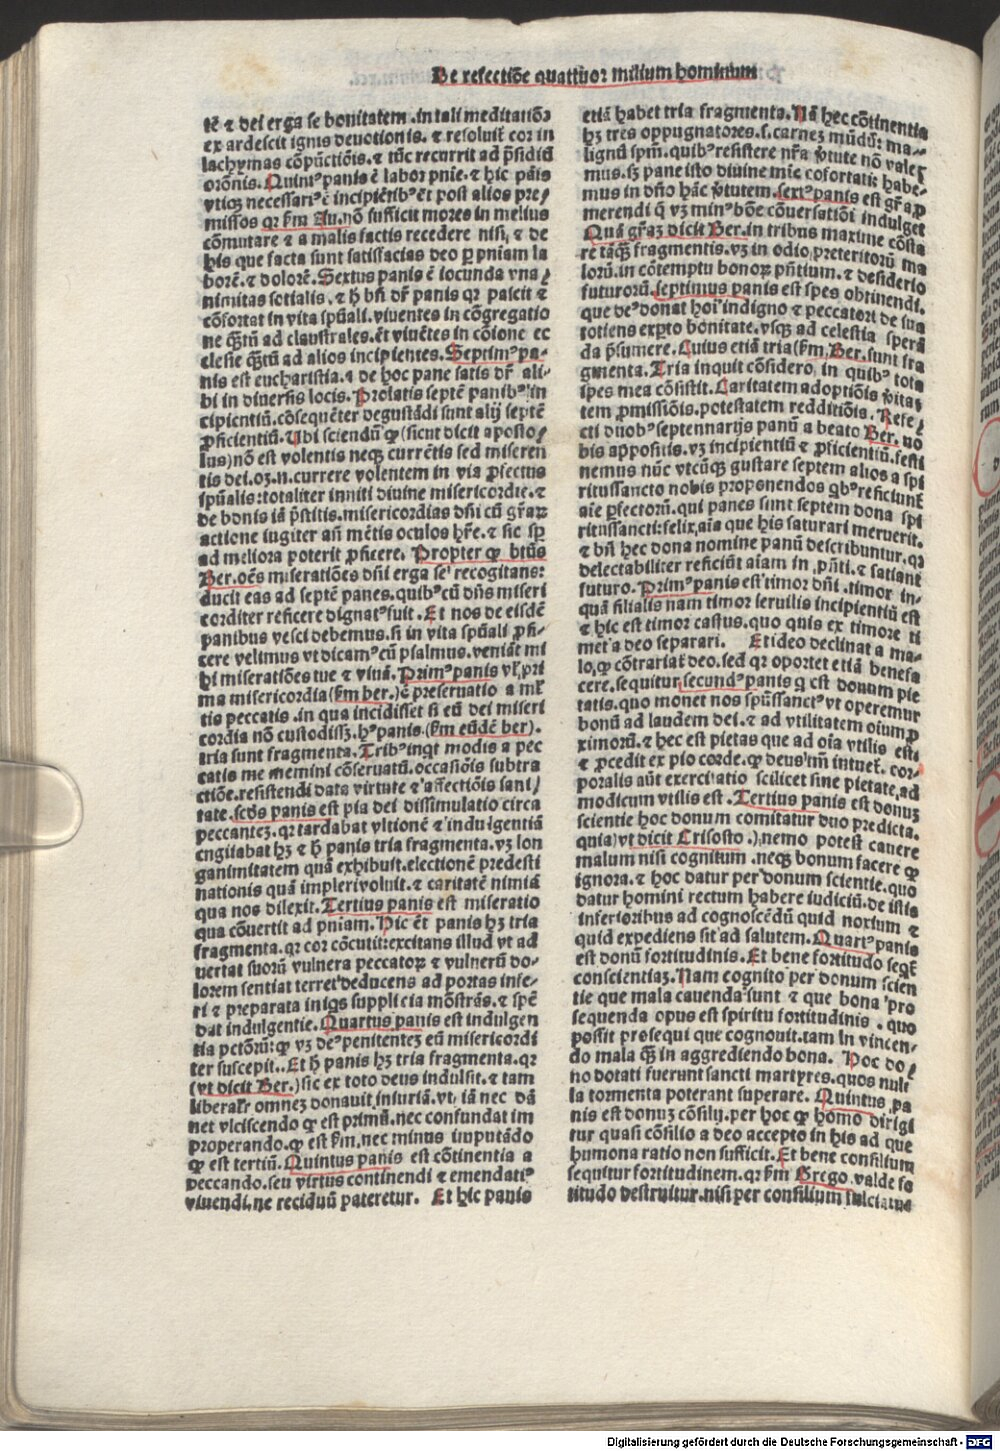 De refectiõe quattuor milium hominum
tē ⁊ dei erga se bonitatem .in tali meditatiõꝫ
ex ardescit ignis deuotionis. ⁊ resoluit̃ cor in
lachymas cõpũctiõis.⁊ tũc recurrit ad p̃sidiũ
orõnis. Quint᷒ panis ē labor pnie. ⁊ hic pãis
vtiqꝫ necessari᷒ ē incipiẽtib᷒ ẽt post alios pre⸗
missos qꝛ ẜm Au.nõ sufficit mores in melius
cõmutare ⁊ a malis factis recedere nisi, ⁊ de
his que facta sunt satisfacias deo ꝑ pniam la
borē.⁊ dolorē. Sextus panis ē iocunda vna/
nimitas sotialis. ⁊ h̃ bñ dr̃ panis qꝛ pascit ⁊
cõfortat in vita spũali. viuentes in cõgregatio
ne q̃ȝtũ ad claustrales. ẽt viuẽtes in cõione ec
clesie q̃ȝtũ ad alios incipientes. Septim᷒ pa⸗
nis est eucharistia. ⁊ de hoc pane satis dr̃ ali⸗
bi in diuersis locis. Prolatis septē panib᷒ in
cipientiũ. cõsequēter degustãdi sunt alij septē
ꝓficientiũ. Ubi sciendũ ꝙ (sicut dicit aposto/
lus) nõ est volentis neqꝫ currētis sed miseren
tis dei.oꝫ.n.currere volentem in via ꝓfectus
spũalis: totaliter inniti diuine misericordie.⁊
de bonis iã p̃stitis.misericordias dñi cũ gr̃aꝝ
actione iugiter añ mētis oculos hr̃e.⁊ sic sꝑ
ad meliora poterit ꝓficere. Propter ꝙ btũs
Ber.oēs miseratiões dñi erga se recogitans:
ducit eas ad septē panes.quib᷒ cũ dñs miseri
corditer reficere dignat᷒ fuit . Et nos de eisdē
panibus vesci debemus.si in vita spũali ꝓfi⸗
cere velimus vt dicam᷒ cũ psalmus.veniãt mi
hi miseratiões tue ⁊ viuã. Prim᷒ panis vl᷒ pri
ma misericordia (ẜm ber.) ē preseruatio a ml̃
tis peccatis .in qua incidisset si eũ dei miseri
cordia nõ custodissꝫ. h᷒ panis.(ẜm eũdē ber).
tria sunt fragmenta. Trib᷒ inqt modis a pec
catis me memini cõseruatũ. occasiõis subtra
ctiõe.resistendi data virtute ⁊ affectiõis sani/
tate.scd̃s panis est pia dei dissimulatio circa
peccantes. qꝛ tardabat vltionē ⁊ indulgentiã
engiiabat hꝫ ⁊ h̃ panis tria fragmenta.vꝫ lon
ganimitatem quã exhibuit.electionē predesti
nationis quã impleri voluit.⁊ caritatē nimiã
qua nos dilexit. Tertius panis est miseratio
qua cõuertit ad pniam. Hic ẽt panis hꝫ tria
fragmenta. qꝛ cor cõcutit: excitans illud vt ad
uertat suorũ vulnera peccatoꝝ ⁊ vulnerũ do⸗
lorem sentiat terret deducens ad portas infe⸗
ri ⁊ preparata iniqs supplicia mõstrãs.⁊ spē
dat indulgentie. Quartus panis est indulgen
tia pctõrũ: ꝙ vꝫ de᷒ penitenteꝫ eũ misericordi
ter suscepit.. Et h̃ panis hꝫ tria fragmenta.qꝛ
(vt dicit Ber.) sic ex toto deus indulsit.⁊ tam
liberalr̃ omneꝫ donauit iniuriã.vt iã nec dã
net vlciscendo ꝙ est primũ.nec confundat im
properando.ꝙ est ẜm.nec minus imputãdo
ꝙ est tertiũ. Quintus panis est cõtinentia a
peccando.seu virtus continendi ⁊ emendati᷒
viuendi.ne reciduũ pateretur. Et hic panis
etiã habet tria fragmenta. Nã hec cõtinentia
hꝫ tres oppugnatores.s.carneꝫ mũdũ: ma⸗
lignũ spm̃. quib᷒ resistere nr̃a v̓tute nõ vale⸗
mus.sꝫ pane isto diuine mie cõfortati: habe⸗
mus in dño hãc v̓tutem. sext᷒ panis est gr̃a ꝓ
merendi q̃ vꝫ min᷒ bõe cõuersatiõi indulget
Quã gr̃aꝫ dicit Ber.in tribus maxime cõsta
re tãq̃ȝ fragmentis.vꝫ in odio preteritorũ ma
lorũ.in cõtemptu bonoꝝ pñtium.⁊ desiderio
futurorũ. septimus panis est spes obtinendi.
que de᷒ donat hoi indigno ⁊ peccatori de sua
totiens expto bonitate. vsqꝫ ad celestia sperã
da p̃sumere. Cuius etiã tria (ẜm. Ber. sunt fra
gmenta. Tria inquit cõsidero, in quib᷒ tota
spes mea cõsistit. Caritatem adoptiõis v̓ita⸗
tem ꝓmissiõis.potestatem redditiõis. Refe/
cti duob᷒ septennarijs panũ a beato Ber. no
bis appositis.vꝫ incipientiũ ⁊ ꝓficientiũ.festi
nemus nũc vtcũqꝫ gustare septem alios a spi
ritussancto nobis proponendos qb᷒ reficiunt̃
aīe ꝑfectorũ. qui panes sunt septem dona spi
ritussancti: felix.aīa que his saturari meruerit.
⁊ bñ hec dona nomine panũ describuntur. qa
delectabiliter reficiũt aīam in .pñti.⁊ satiant̃
futuro. Prim᷒ panis est timor dñi .timor in⸗
quã filialis nam timor seruilis incipientiũ est
⁊ hic est timor castus.quo quis ex timore ti
met a deo separari. Et ideo declinat a ma⸗
lo, ꝙ cõtrariat̃ deo.sed qꝛ oportet etiã benefa
cere.sequitur secund᷒ panis q est donum pie
tatis.quo monet nos spũssanct᷒ vt operemur
bonũ ad laudem dei. ⁊ ad vtilitatem oium ꝓ
ximorũ. ⁊ hec est pietas que ad oīa vtilis est:
⁊ ꝓcedit ex pio corde.ꝙ deus im̃ intuet̃. cor⸗
poralis aũt exercitatio scilicet sine pietate, ad
modicum vtilis est . Tertius panis est donuꝫ
scientie hoc donum comitatur duo predicta.
quia) vt dicit Crisosto .) nemo potest cauere
malum nisi cognitum .neqꝫ bonum facere ꝙ
ignora. ⁊ hoc datur per donum scientie. quo
datur homini rectum habere iudiciũ. de istis
inferioribus ad cognoscēdũ quid noxium ⁊
quid expediens sit ad salutem. Quart᷒ panis
est donũ fortitudinis. Et bene fortitudo seqt̃
conscientiaꝫ. Nam cognito per donum scien
tie que mala cauenda sunt ⁊ que bona pro
sequenda opus est spiritu fortitudinis . quo
possit prosequi que cognouit. tam in vincen⸗
do mala q̃ȝ in aggrediendo bona. Hoc do/
no dotati fuerunt sancti martyres. quos nul⸗
la tormenta poterant superare. Quintus pa
nis est donuꝫ cõsilij.per hoc ꝙ homo dirigi
tur quasi cõsilio a deo accepto in his ad que
humona ratio non sufficit. Et bene consilium
sequitur fortitudinem. qꝛ ẜm Grego. valde fo
titudo destruitur.nisi per consilium fulciatur
Digitalisierung gefördert durch die Deutsche Forschungsgemeinschaft - DFG